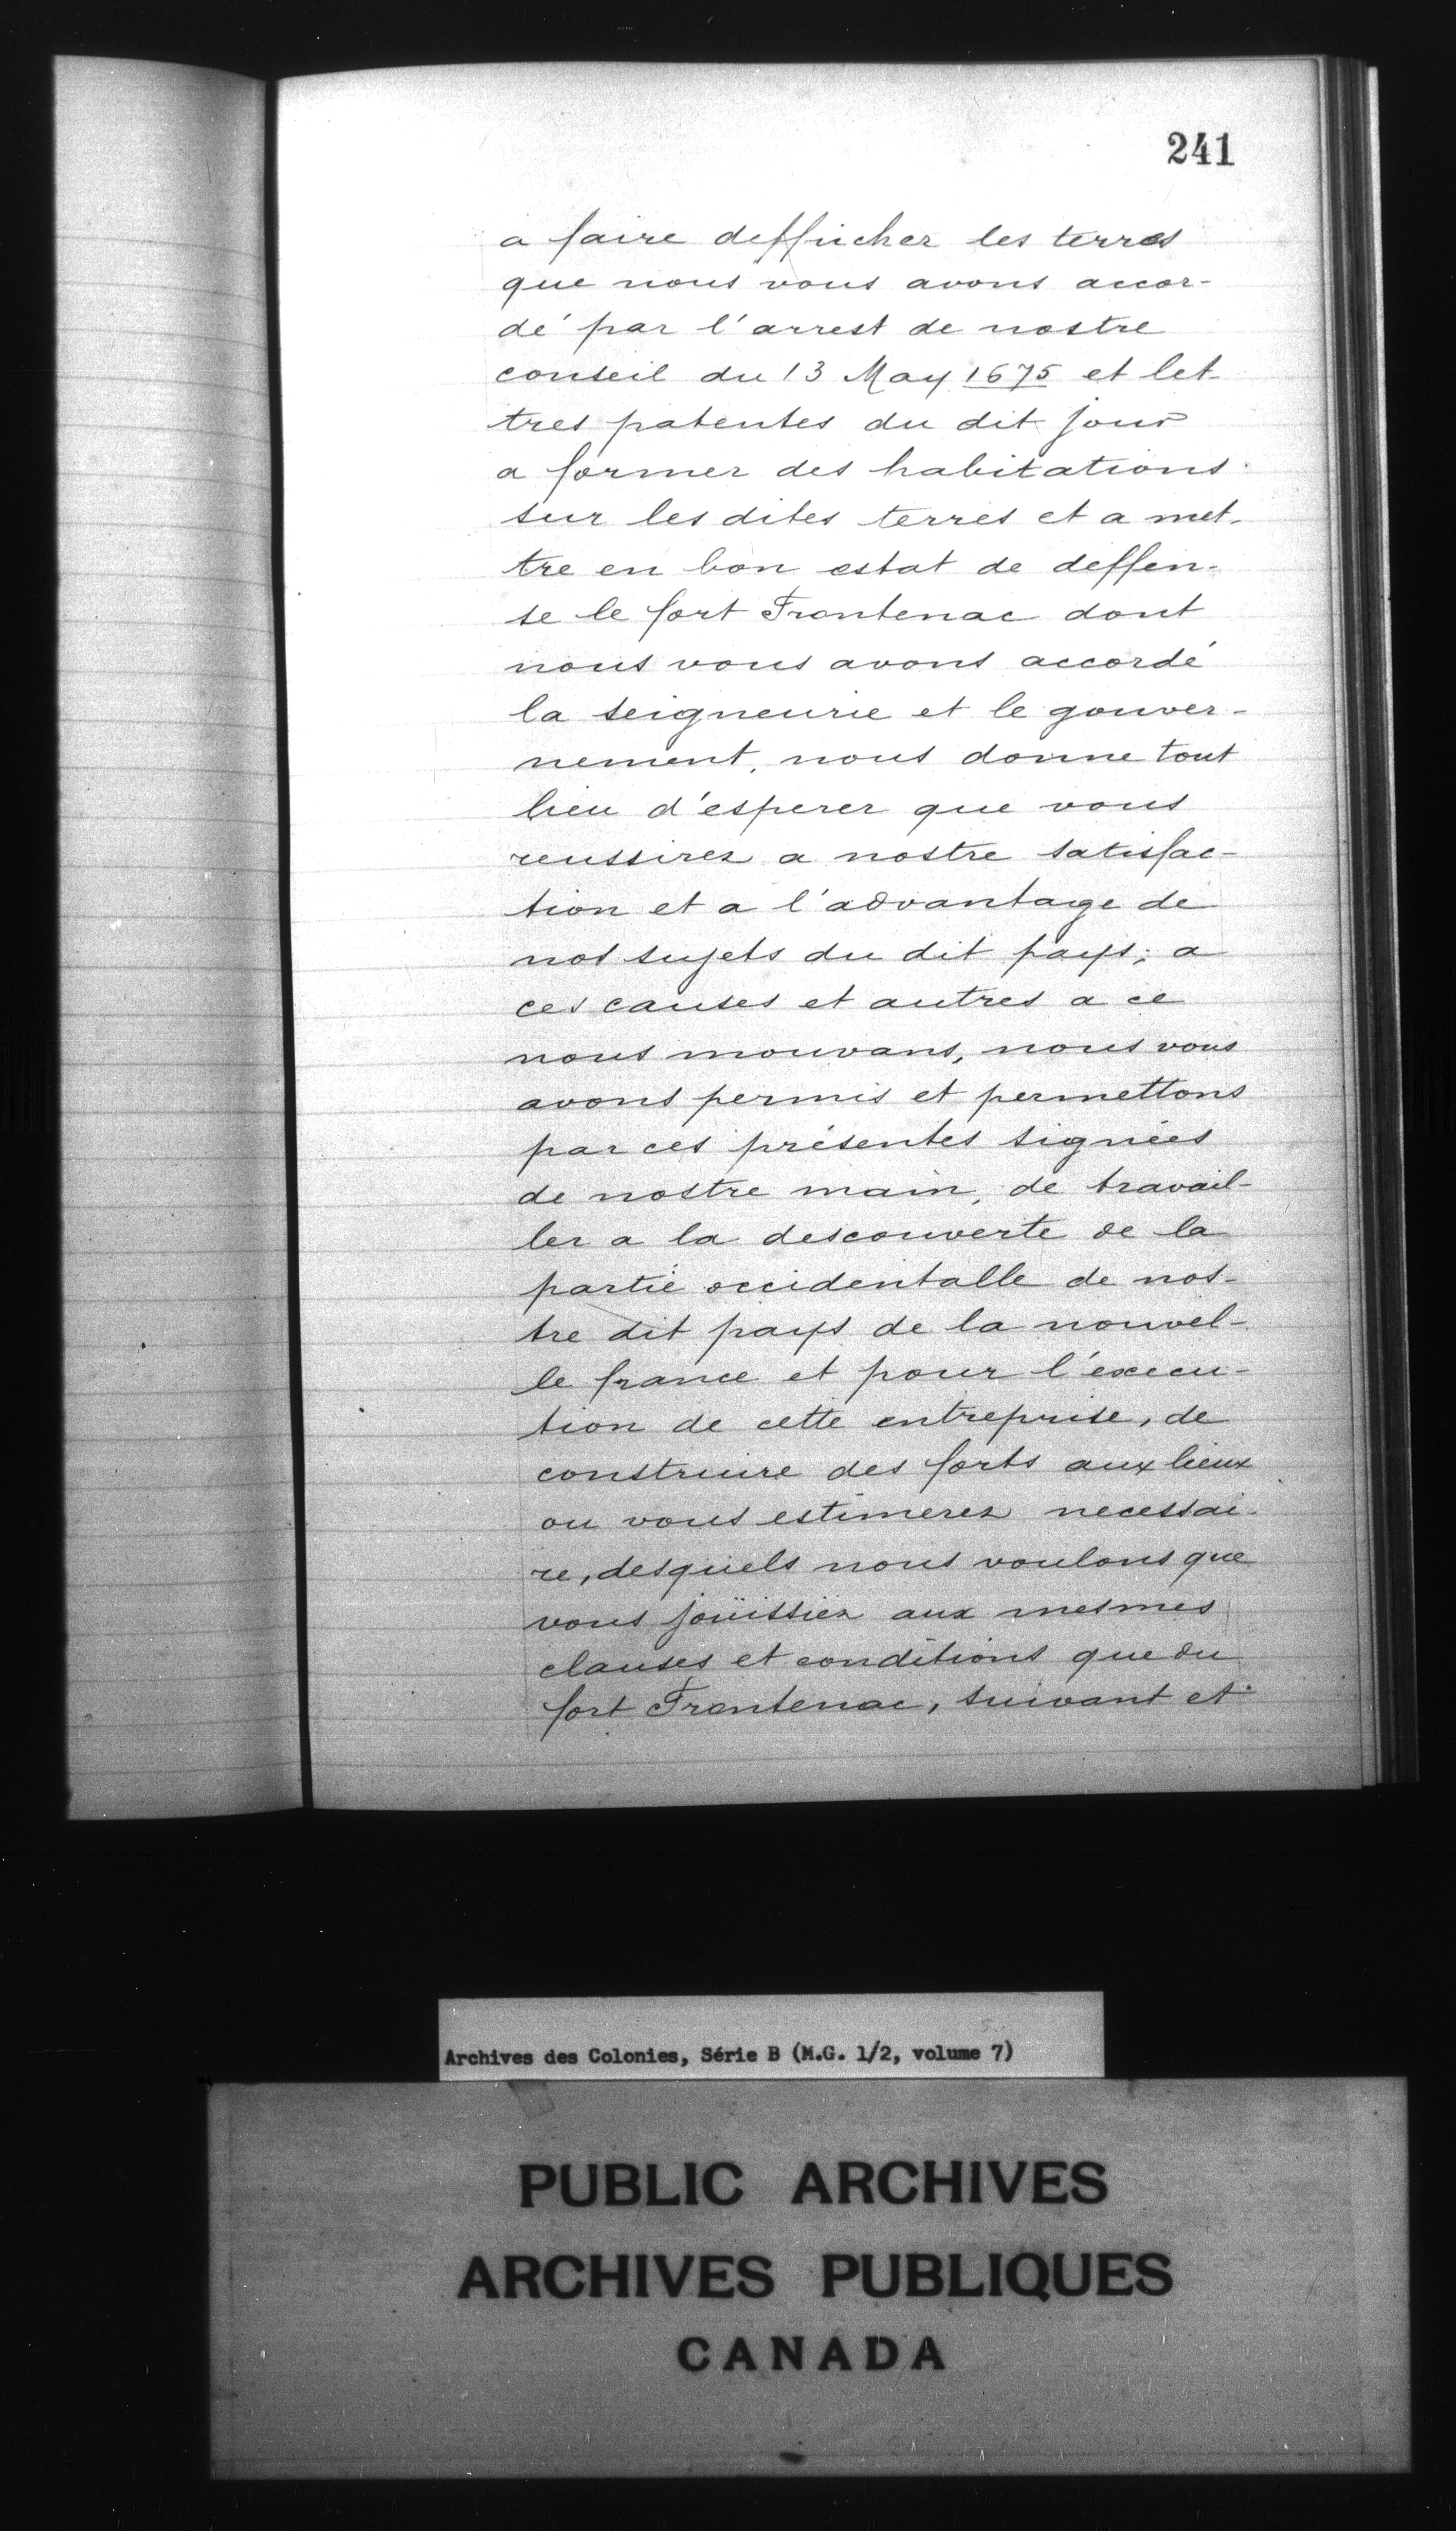 241
a faire deffricher les terres
que nous vous avons accor-
dé par l'arrest de nostre
conseil du 13 May 1675 et let-
tres patentes du dit jour
a former des habitations
sur les dites terres et a met-
tre en bon estat de deffen-
se le fort Frontenac dont
nous vous avons accordé
la seigneurie et le gouver-
nement, nous donne tout
lieu d'esperer que vous
reussirez a nostre satisfac-
tion et a l'advantage de
nos sujets du dit pays; a
ces causes et autres a ce
nous mouvans, nous vous
avons permis et permettons
par ces présentes signées
de nostre main, de travail-
ler a la descouverte de la
partie occidentalle de nos-
tre dit pays de la nouvel-
le france et pour l'execu-
tion de cette entreprise, de
construire des forts aux lieux
ou vous estimerez necessai-
re, desquels nous voulons que
vous joüissiez aux mesmes
clauses et conditions que du
fort Frontenac, suivant et
Archives des Colonies, Série B (M.G. 1/2, volume 7)
PUBLIC ARCHIVES
ARCHIVES PUBLIQUES
CANADA